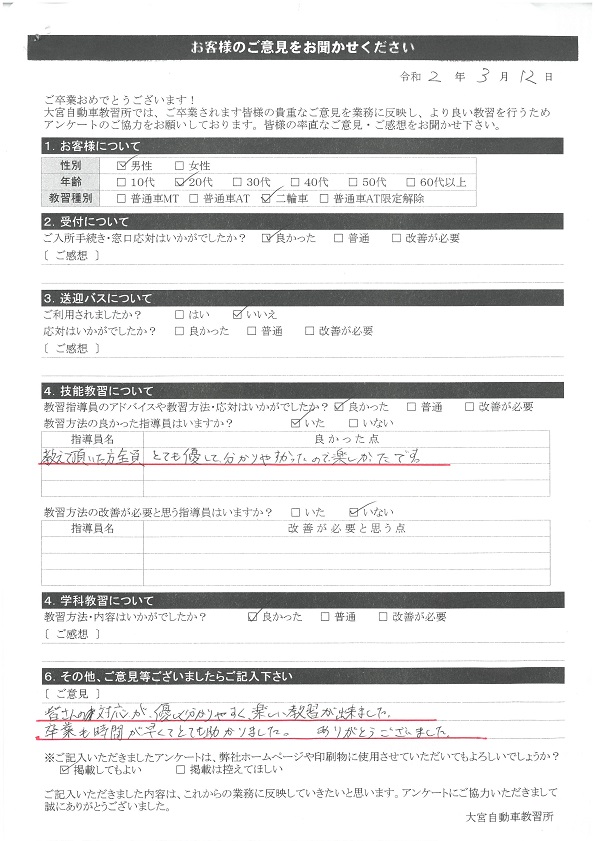 お客様のご意見をお聞かせください
令和 2 年 3 月 12 日
ご卒業おめでとうございます！
大宮自動車教習所では、ご卒業されます皆様の貴重なご意見を業務に反映し、より良い教習を行うため
アンケートのご協力をお願いしております。皆様の率直なご意見・ご感想をお聞かせ下さい。
1. お客様について
性別 ☑男性 □女性
年齢 □10代 ☑20代 □30代 □40代 □50代 □60代以上
教習種別 □普通車MT □普通車AT ☑二輪車 □普通車AT限定解除
2. 受付について
ご入所手続き・窓口応対はいかがでしたか？ ☑良かった □普通 □改善が必要
[ ご感想 ]
3. 送迎バスについて
ご利用されましたか？ □はい ☑いいえ
応対はいかがでしたか？ □良かった □普通 □改善が必要
[ ご感想 ]
4. 技能教習について
教習指導員のアドバイスや教習方法・応対はいかがでしたか？ ☑良かった □普通 □改善が必要
教習方法の良かった指導員はいますか？ ☑いた □いない
指導員名 良かった点
教えて頂いた方全員 とても優しく分かりやすかったので楽しかったです。
教習方法の改善が必要と思う指導員はいますか？ □いた ☑いない
指導員名 改善が必要と思う点
4. 学科教習について
教習方法・内容はいかがでしたか？ ☑良かった □普通 □改善が必要
[ ご感想 ]
6. その他、ご意見等ございましたらご記入下さい
[ ご意見 ]
皆さんの対応が、優しく分かりやすく、楽しい教習が出来ました。
卒業も時間が早くてとても助かりました。 ありがとうございました。
※ご記入いただきましたアンケートは、弊社ホームページや印刷物に使用させていただいてもよろしいでしょうか？
☑掲載してもよい □掲載は控えてほしい
ご記入いただきました内容は、これからの業務に反映していきたいと思います。アンケートにご協力いただきまして
誠にありがとうございました。
大宮自動車教習所